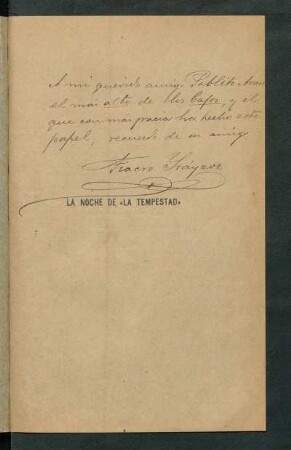 A mi querido amigo Pablito
el mas alto de los Cafres, y el
que con mas gracia ha hecho este
papel, recuerdo de su amigo
Fiacro Iráyzoz
LA NOCHE DE «LA TEMPESTAD»